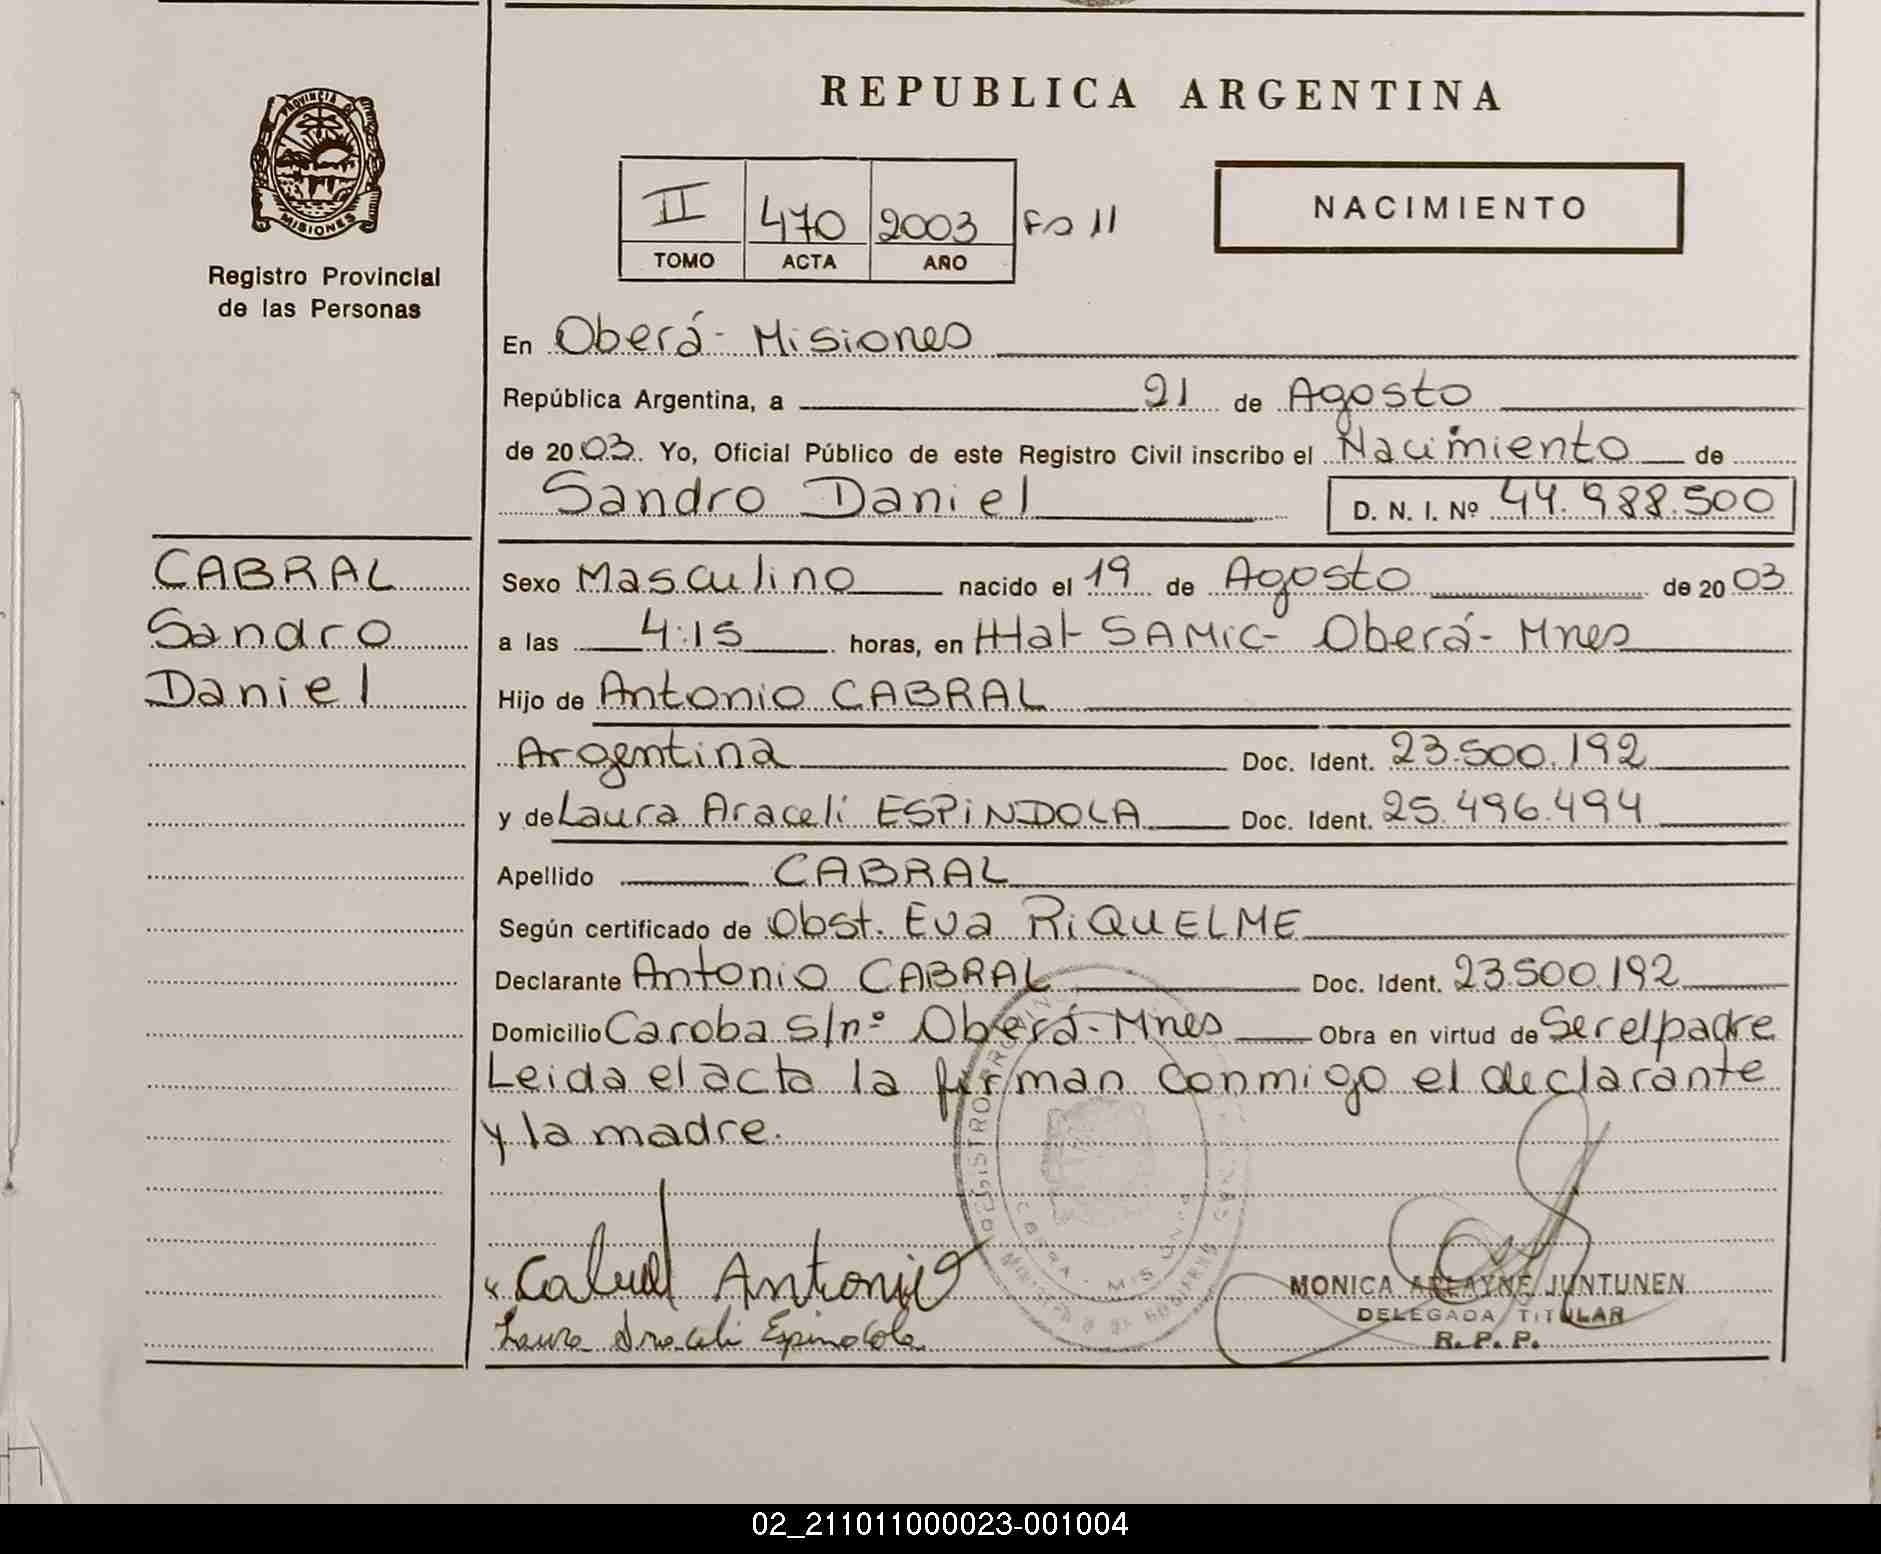 REPUBLICA ARGENTINA
PROVINCIA D
MISIONES
Registro Provincial
de las Personas
II 470 2003 Fº 11
TOMO ACTA AÑO
NACIMIENTO
En Oberá - Misiones
República Argentina, a 21 de Agosto
de 2003. Yo, Oficial Público de este Registro Civil inscribo el Nacimiento de
Sandro Daniel D. N. I. Nº 44.988.500
CABRAL
Sandro
Daniel
Sexo Masculino nacido el 19 de Agosto de 2003
a las 4:15 horas, en Htal SAMIC - Oberá - Mnes
Hijo de Antonio CABRAL
Argentina Doc. Ident. 23.500.192
y de Laura Araceli ESPINDOLA Doc. Ident. 25.496.494
Apellido CABRAL
Según certificado de Obst. Eva RIQUELME
Declarante Antonio CABRAL Doc. Ident. 23.500.192
Domicilio Caroba s/nº Oberá - Mnes Obra en virtud de Ser el padre
Leida el acta la firman conmigo el declarante
y la madre.
Cabral Antonio
Laura Araceli Espindola
MONICA JUNTUNEN
DELEGADA TITULAR
R. P. P.
02_211011000023-001004